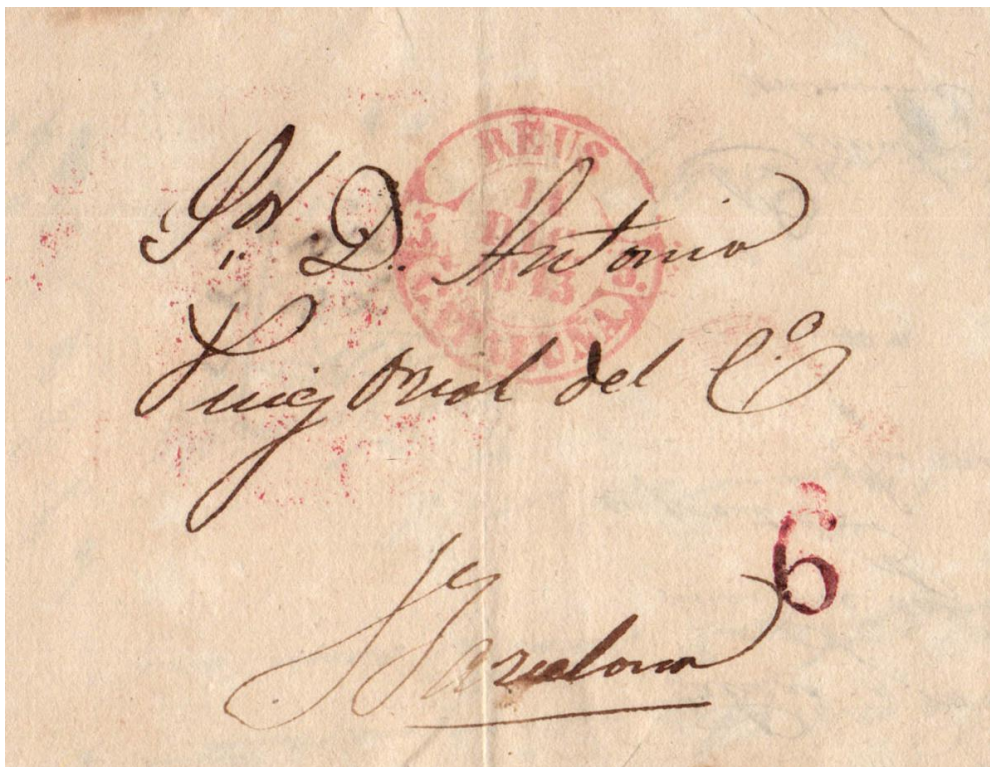 REUS
14
DIC
1843
CATALUÑA.
Sor. D. Antonio
Puig Oriol del C.o
6
Barcelona